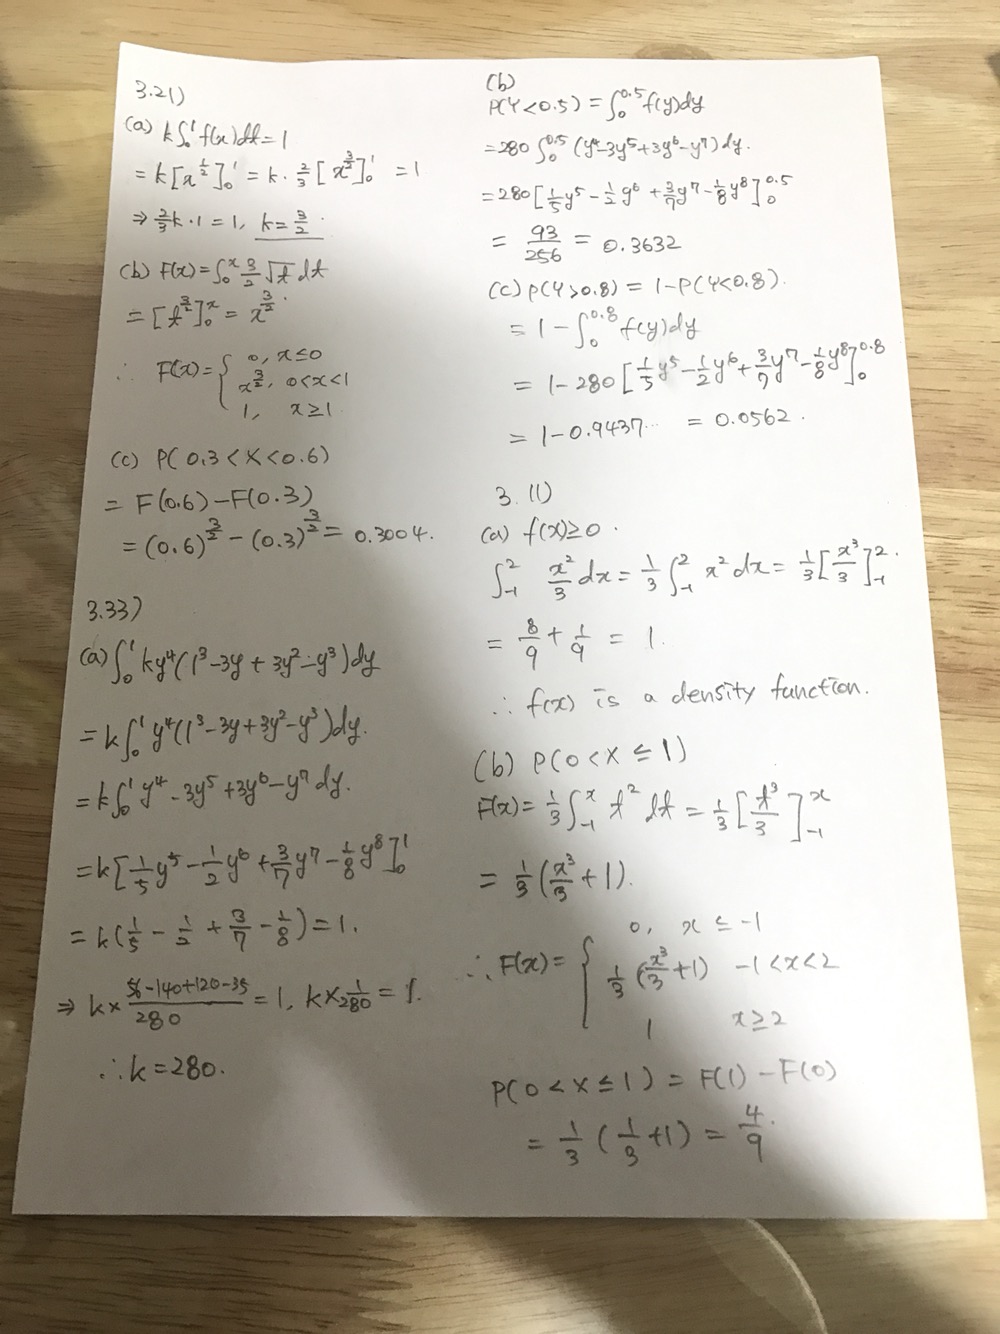 3.21)
(a) k∫₀¹ f(x)dx = 1
= k[x^{1/2}]₀¹ = k · 2/3 [x^{3/2}]₀¹ = 1
⇒ 2/3 k · 1 = 1, k = 3/2.
(b) F(x) = ∫₀ˣ 3/2 √t dt
= [t^{3/2}]₀ˣ = x^{3/2}.
∴ F(x) = { 0, x ≤ 0
x^{3/2}, 0 < x < 1
1, x ≥ 1.
(c) P(0.3 < X < 0.6)
= F(0.6) - F(0.3)
= (0.6)^{3/2} - (0.3)^{3/2} = 0.3004.
3.33)
(a) ∫₀¹ ky⁴(1³ - 3y + 3y² - y³)dy
= k∫₀¹ y⁴(1³ - 3y + 3y² - y³)dy.
= k∫₀¹ y⁴ - 3y⁵ + 3y⁶ - y⁷ dy.
= k[1/5 y⁵ - 1/2 y⁶ + 3/7 y⁷ - 1/8 y⁸]₀¹
= k(1/5 - 1/2 + 3/7 - 1/8) = 1.
⇒ k × (56-140+120-35)/280 = 1, k × 1/280 = 1.
∴ k = 280.
(b)
P(Y < 0.5) = ∫₀^{0.5} f(y)dy
= 280 ∫₀^{0.5} (y⁴ - 3y⁵ + 3y⁶ - y⁷) dy.
= 280 [1/5 y⁵ - 1/2 y⁶ + 3/7 y⁷ - 1/8 y⁸]₀^{0.5}
= 93/256 = 0.3632
(c) P(Y > 0.8) = 1 - P(Y < 0.8).
= 1 - ∫₀^{0.8} f(y)dy
= 1 - 280 [1/5 y⁵ - 1/2 y⁶ + 3/7 y⁷ - 1/8 y⁸]₀^{0.8}
= 1 - 0.9437... = 0.0562.
3.11)
(a) f(x) ≥ 0.
∫₋₁² x²/3 dx = 1/3 ∫₋₁² x² dx = 1/3 [x³/3]₋₁².
= 8/9 + 1/9 = 1.
∴ f(x) is a density function.
(b) P(0 < X ≤ 1)
F(x) = 1/3 ∫₋₁ˣ t² dt = 1/3 [t³/3]₋₁ˣ
= 1/3 (x³/3 + 1).
∴ F(x) = { 0, x ≤ -1
1/3 (x³/3 + 1) -1 < x < 2
1 x ≥ 2
P(0 < X ≤ 1) = F(1) - F(0)
= 1/3 (1/3 + 1) = 4/9.